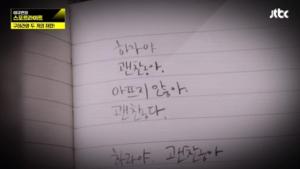 이규연의
스포트라이트
구하라와 두 개의 재판!
jtbc
하라야
괜찮아.
아프지 않아.
괜찮다.
하라야 괜찮아